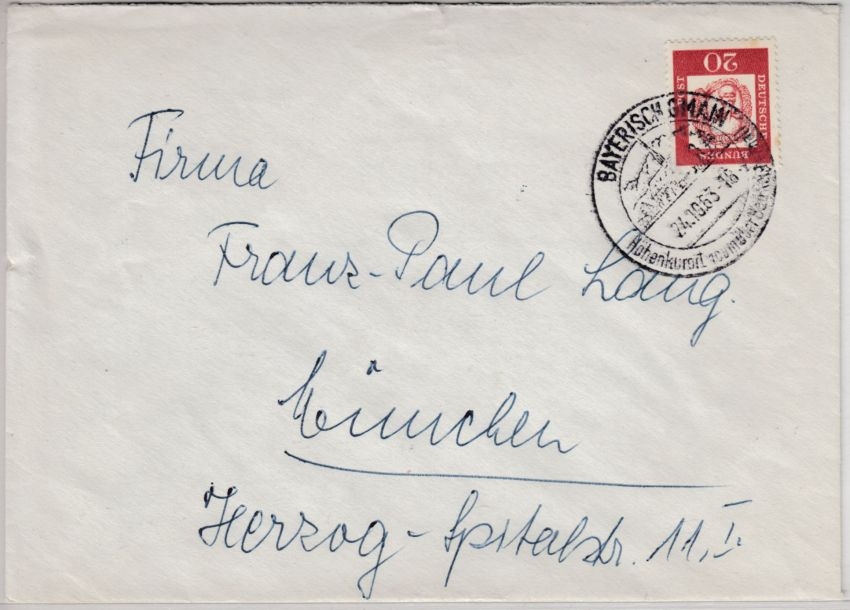 20
DEUTSCHE
BUNDESPOST
BAYERISCH GMAIN
24.10.63-16
Höhenkurort 100m über Bad
Firma
Franz-Paul Lang.
München
Herzog-Spitalstr. 11,I.